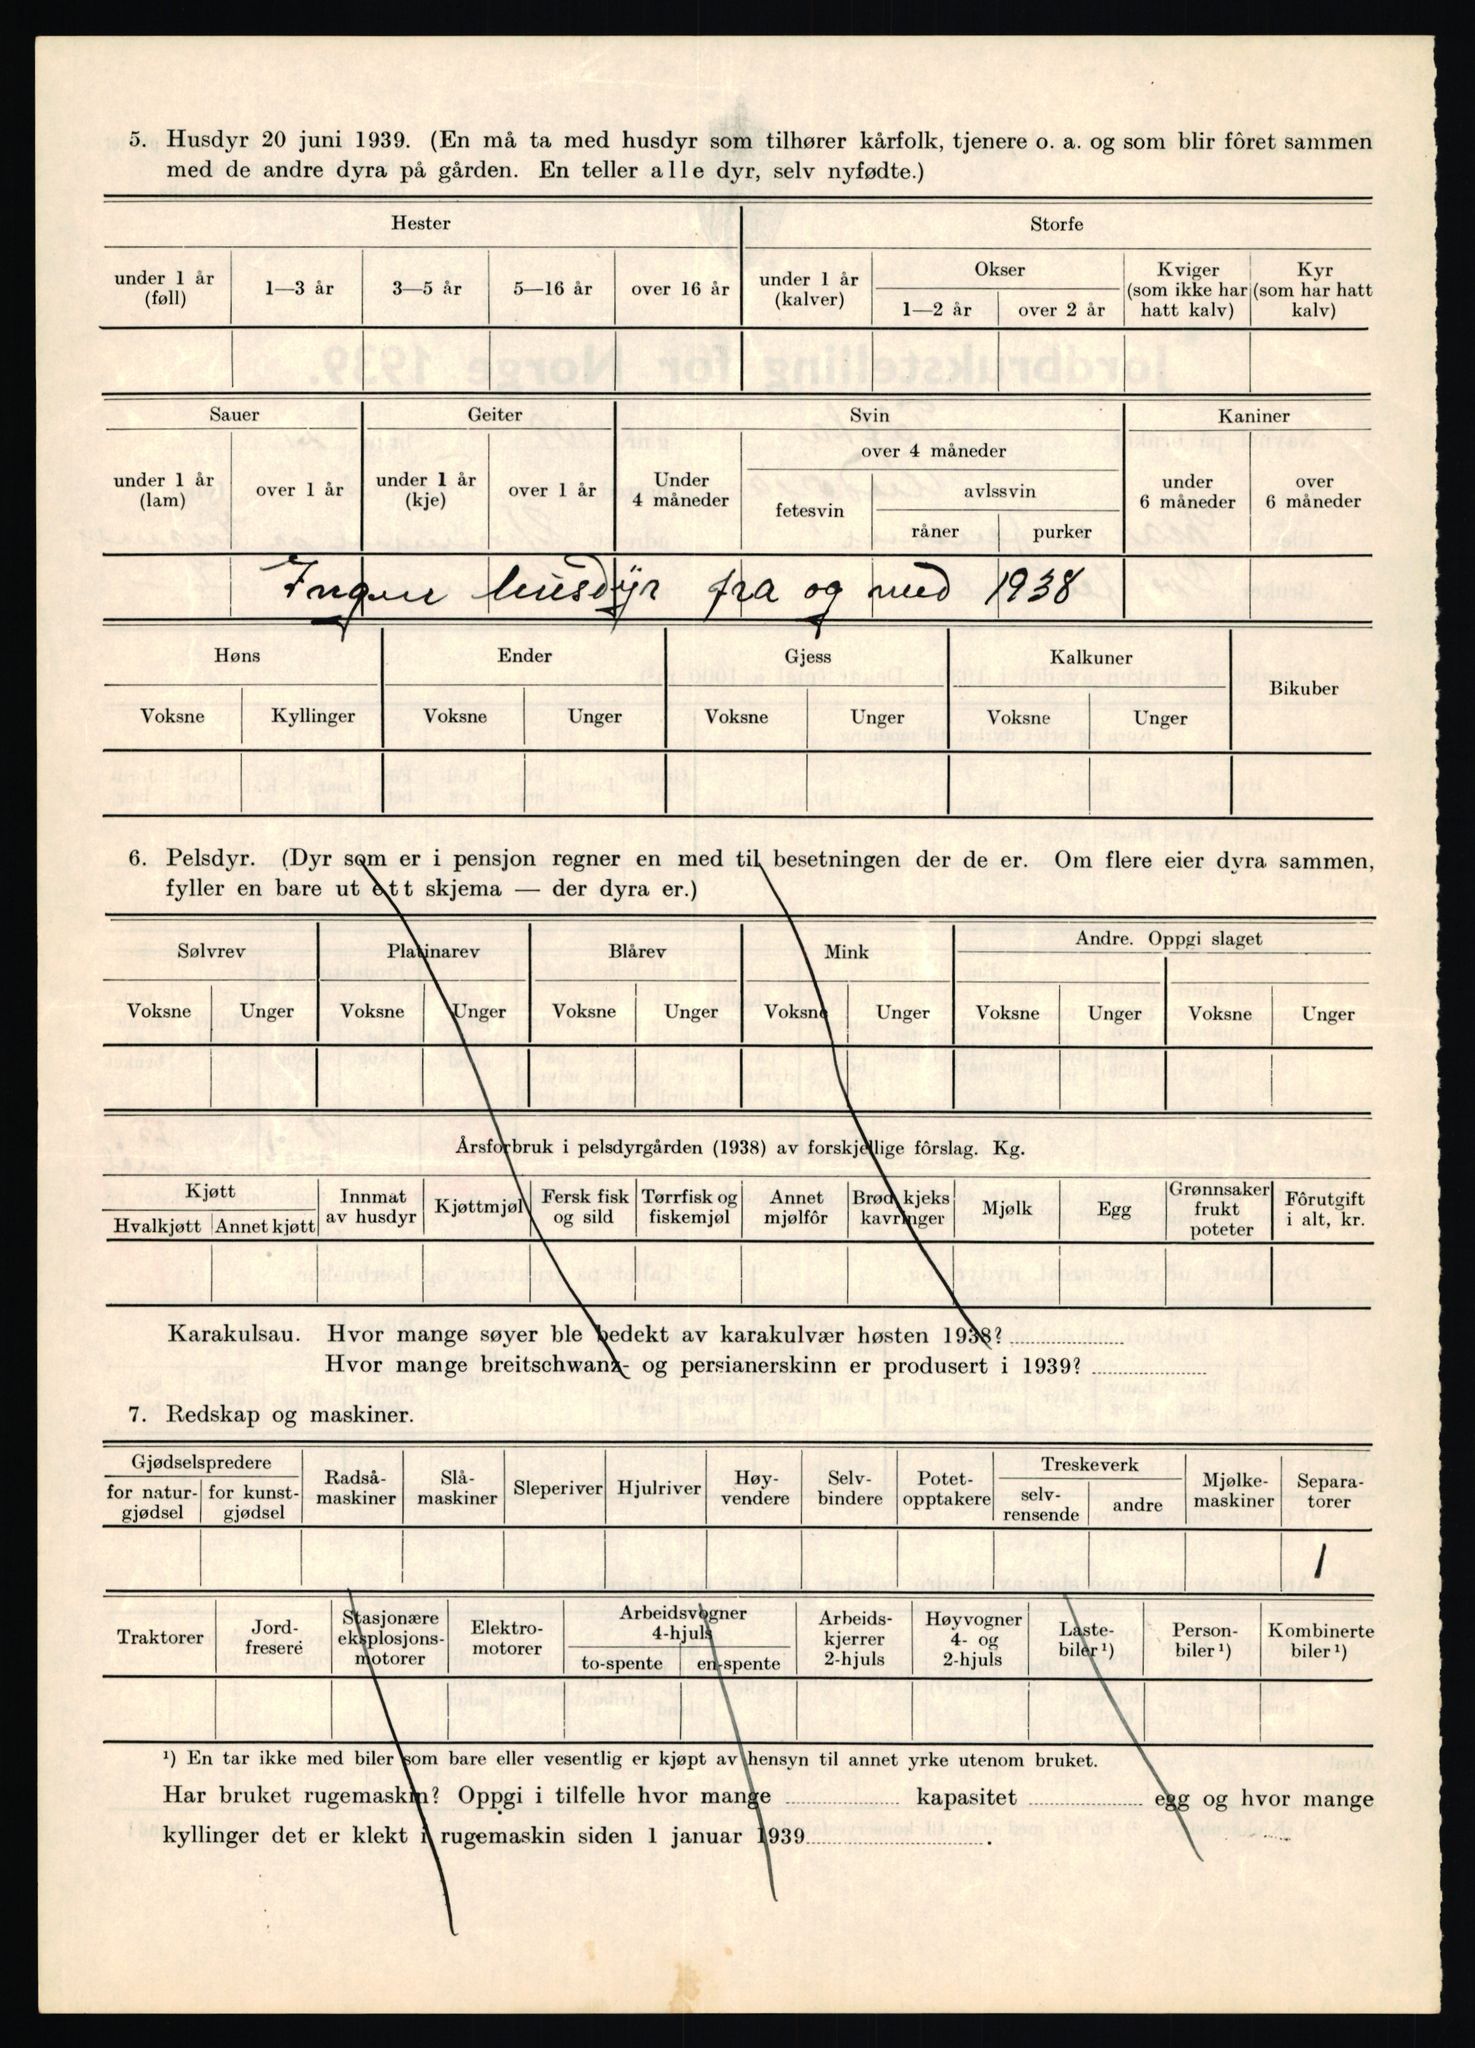 5. Husdyr 20 juni 1939. (En må ta med husdyr som tilhører kårfolk, tjenere o. a. og som blir fôret sammen
med de andre dyra på gården. En teller alle dyr, selv nyfødte.)
Hester Storfe
under 1 år (føll) 1—3 år 3—5 år 5—16 år over 16 år under 1 år (kalver) Okser 1—2 år over 2 år Kviger (som ikke har hatt kalv) Kyr (som har hatt kalv)
Sauer Geiter Svin Kaniner
under 1 år (lam) over 1 år under 1 år (kje) over 1 år Under 4 måneder over 4 måneder fetesvin avlssvin råner purker under 6 måneder over 6 måneder
Ingen husdyr fra og med 1938
Høns Ender Gjess Kalkuner Bikuber
Voksne Kyllinger Voksne Unger Voksne Unger Voksne Unger
6. Pelsdyr. (Dyr som er i pensjon regner en med til besetningen der de er. Om flere eier dyra sammen,
fyller en bare ut ett skjema — der dyra er.)
Sølvrev Platinarev Blårev Mink Andre. Oppgi slaget
Voksne Unger Voksne Unger Voksne Unger Voksne Unger Voksne Unger Voksne Unger
Årsforbruk i pelsdyrgården (1938) av forskjellige fôrslag. Kg.
Kjøtt Hvalkjøtt Annet kjøtt Innmat av husdyr Kjøttmjøl Fersk fisk og sild Tørrfisk og fiskemjøl Annet mjølfôr Brød, kjeks kavringer Mjølk Egg Grønnsaker frukt poteter Fôrutgift i alt, kr.
Karakulsau. Hvor mange søyer ble bedekt av karakulvær høsten 1938?
Hvor mange breitschwanz- og persianerskinn er produsert i 1939?
7. Redskap og maskiner.
Gjødselspredere for natur-gjødsel for kunst-gjødsel Radså-maskiner Slå-maskiner Sleperiver Hjulriver Høy-vendere Selv-bindere Potet-opptakere Treskeverk selv-rensende andre Mjølke-maskiner Separa-torer
1
Traktorer Jord-fresere Stasjonære eksplosjons-motorer Elektro-motorer Arbeidsvogner 4-hjuls to-spente en-spente Arbeids-kjerrer 2-hjuls Høyvogner 4- og 2-hjuls Laste-biler ¹) Person-biler ¹) Kombinerte biler ¹)
¹) En tar ikke med biler som bare eller vesentlig er kjøpt av hensyn til annet yrke utenom bruket.
Har bruket rugemaskin? Oppgi i tilfelle hvor mange kapasitet egg og hvor mange
kyllinger det er klekt i rugemaskin siden 1 januar 1939 .